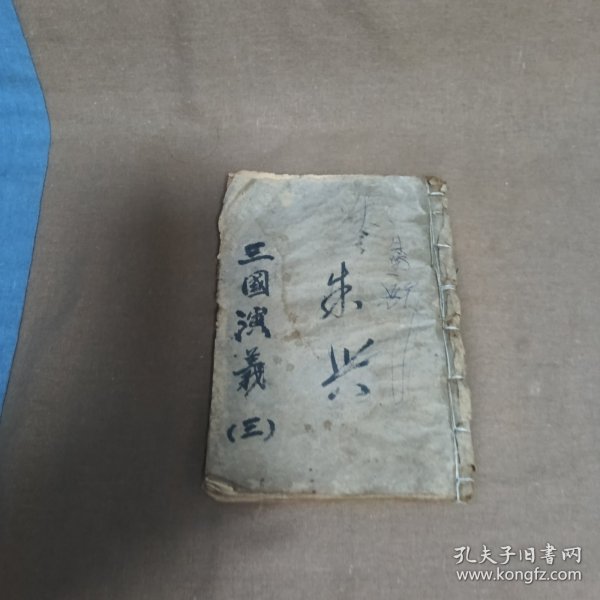 三國演義(三)
朱兴
孔夫子旧书网
www.kongfz.com